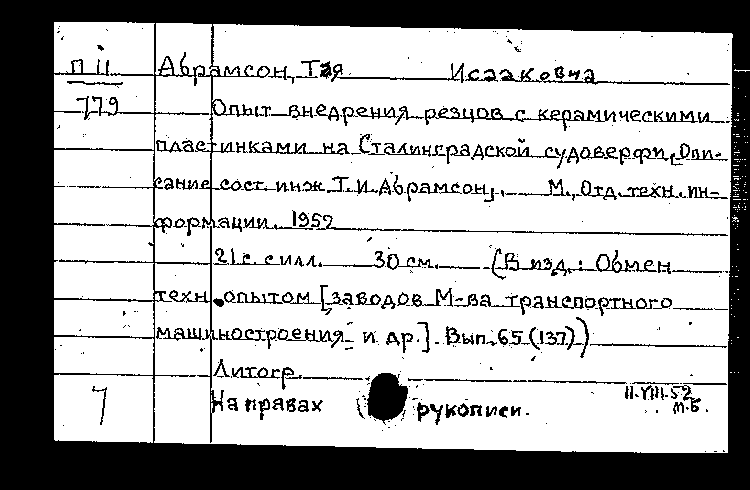 П II Абрамсон, Тая Исааковна
779 Опыт внедрения резцов с керамическими
пластинками на Сталинградской судоверфи, [Опи-
сание сост. инж. Т.И. Абрамсон]. М., Отд. техн. ин-
формации. 1952
21 с. с илл. 30 см. (В изд.: Обмен
техн. опытом [заводов М-ва транспортного
машиностроения и др.]. Вып. 65 (137))
Литогр.
7 На правах рукописи.
11.VIII.52
М.Б.